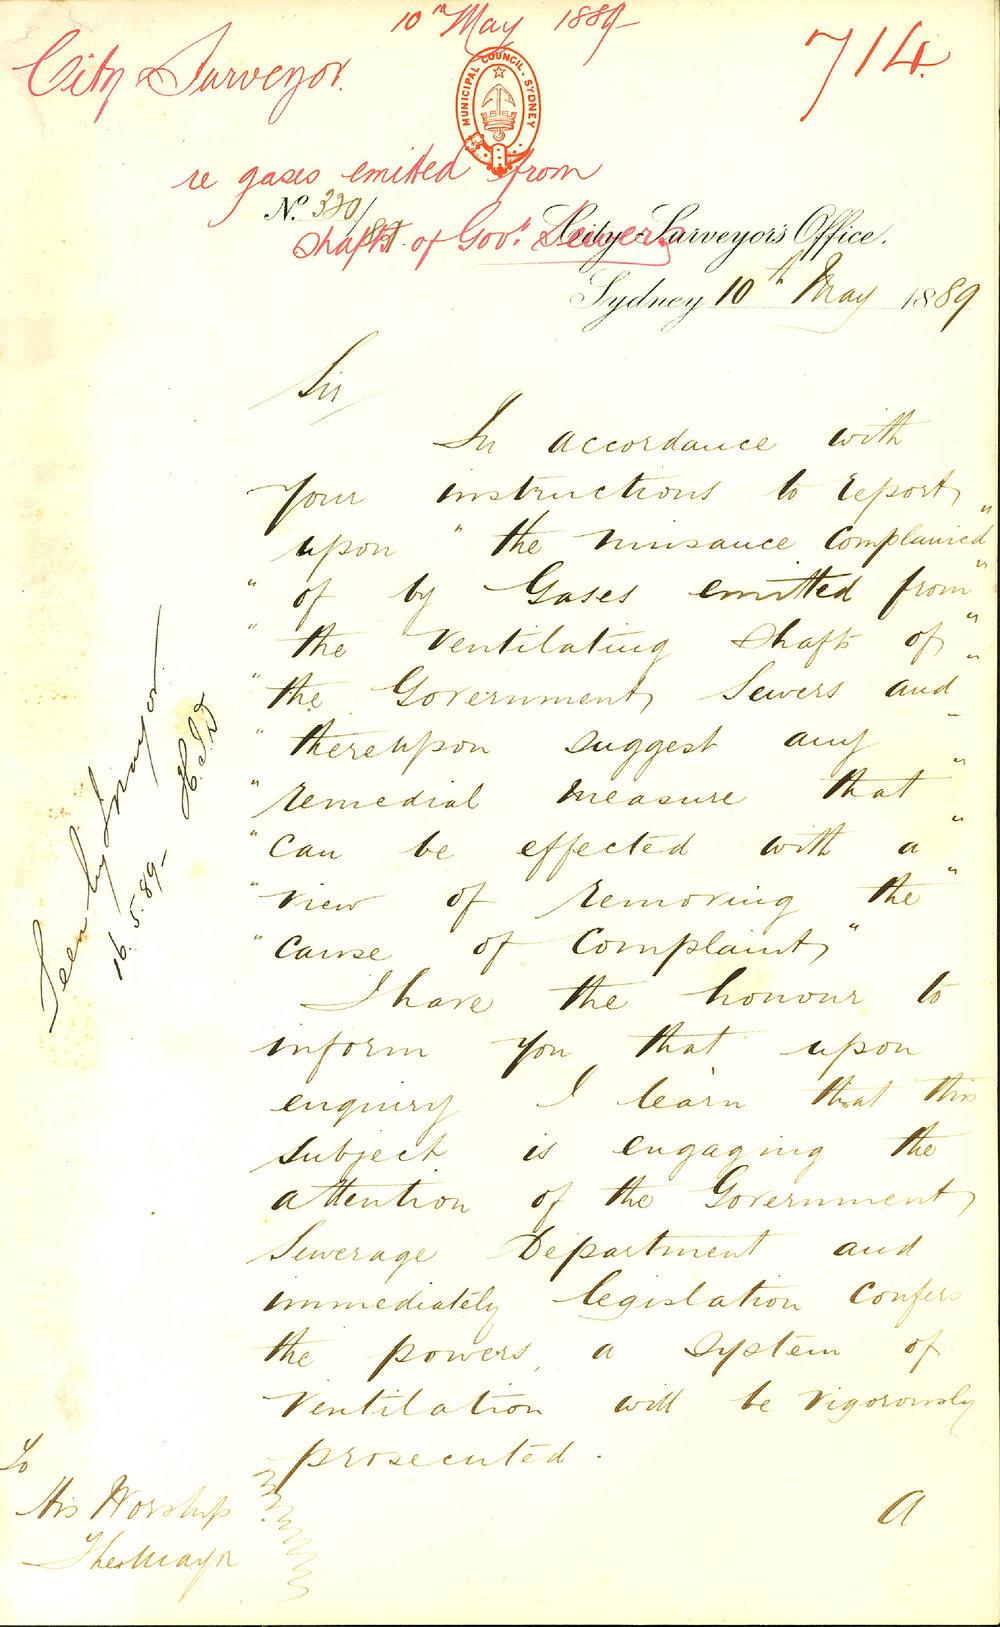 10th May 1889
714.
City Surveyor.
MUNICIPAL COUNCIL · SYDNEY
re gases emitted from
No. 320/89.
shafts of Govt. Sewers
City Surveyor's Office.
Sydney 10th May 1889
Sir
In accordance with
your instructions to report
upon "the nuisance complained"
"of by Gases emitted from"
"the ventilating shafts of"
"the Government Sewers and"
"thereupon suggest any"
"remedial measure that"
"can be effected with a"
"view of removing the"
"cause of complaint"
I have the honour to
inform you that upon
enquiry I learn that this
subject is engaging the
attention of the Government
Sewerage Department and
immediately legislation confers
the powers, a system of
ventilation will be vigorously
prosecuted.
Seen by Mayor
16.5.89
To
His Worship
The Mayor
A